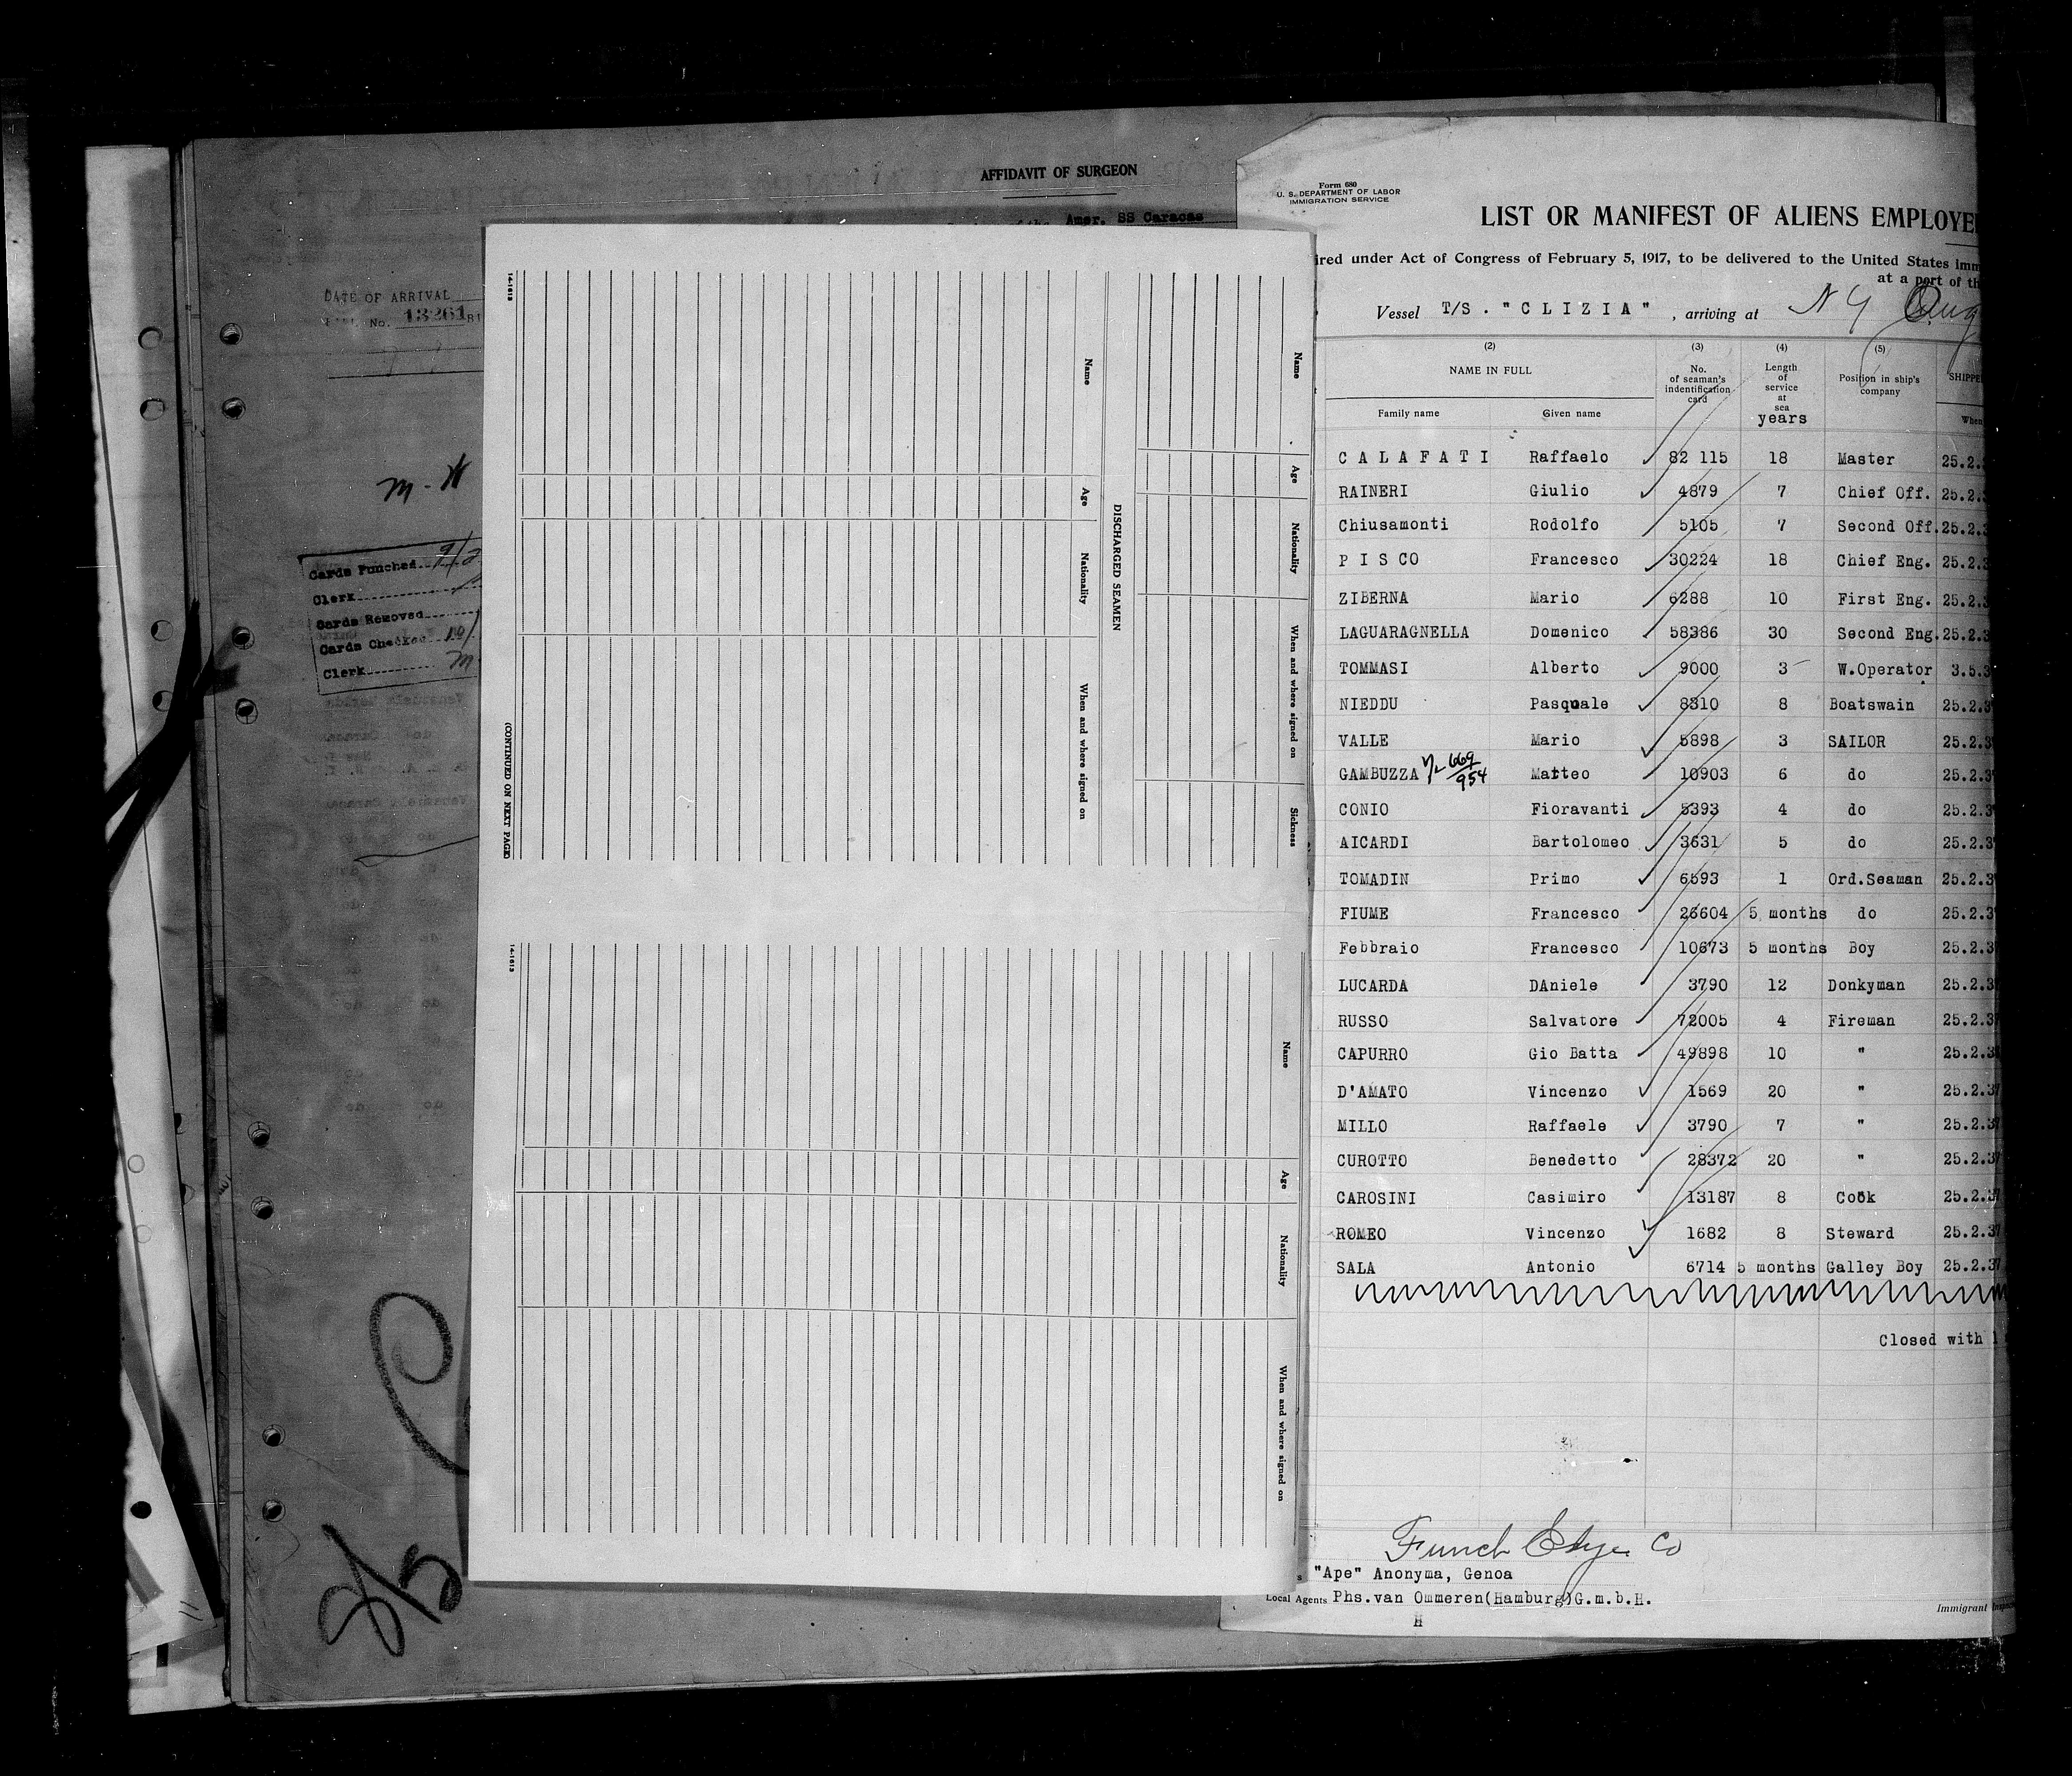 AFFIDAVIT OF SURGEON
Amer. SS Caracas
DATE OF ARRIVAL
No. 13261
M-H
Cards Punched 9/2
Clerk
Cards Removed
Cards Checked 10/
Clerk M
Name Age Nationality When and where signed on Sickness
DISCHARGED SEAMEN
Name Age Nationality When and where signed on
14-1613
(CONTINUED ON NEXT PAGE)
Name Age Nationality When and where signed on
14-1613
Form 680
U. S. DEPARTMENT OF LABOR
IMMIGRATION SERVICE
LIST OR MANIFEST OF ALIENS EMPLOYE
ired under Act of Congress of February 5, 1917, to be delivered to the United States imm
at a port of th
Vessel T/S. "CLIZIA", arriving at N Y Aug
(2) (3) (4) (5)
NAME IN FULL
Family name Given name
No. of seaman's indentification card
Length of service at sea years
Position in ship's company
SHIPPE
When
CALAFATI Raffaelo 82 115 18 Master 25.2.3
RAINERI Giulio 4879 7 Chief Off. 25.2.3
Chiusamonti Rodolfo 5105 7 Second Off. 25.2.3
PISCO Francesco 30224 18 Chief Eng. 25.2.3
ZIBERNA Mario 6288 10 First Eng. 25.2.3
LAGUARAGNELLA Domenico 58386 30 Second Eng. 25.2.3
TOMMASI Alberto 9000 3 W.Operator 3.5.3
NIEDDU Pasquale 8310 8 Boatswain 25.2.3
VALLE Mario 5898 3 SAILOR 25.2.3
GAMBUZZA 669/954 Matteo 10903 6 do 25.2.3
CONIO Fioravanti 5393 4 do 25.2.3
AICARDI Bartolomeo 3631 5 do 25.2.3
TOMADIN Primo 6593 1 Ord.Seaman 25.2.3
FIUME Francesco 26604 5 months do 25.2.3
Febbraio Francesco 10673 5 months Boy 25.2.3
LUCARDA DAniele 3790 12 Donkyman 25.2.3
RUSSO Salvatore 72005 4 Fireman 25.2.37
CAPURRO Gio Batta 49898 10 " 25.2.37
D'AMATO Vincenzo 1569 20 " 25.2.37
MILLO Raffaele 3790 7 " 25.2.37
CUROTTO Benedetto 28372 20 " 25.2.37
CAROSINI Casimiro 13187 8 Cook 25.2.37
ROMEO Vincenzo 1682 8 Steward 25.2.37
SALA Antonio 6714 5 months Galley Boy 25.2.37
Closed with
Funch Edye Co
"Ape" Anonyma, Genoa
Local Agents Phs.van Ommeren(Hamburg)G.m.b.H.
H
Immigrant